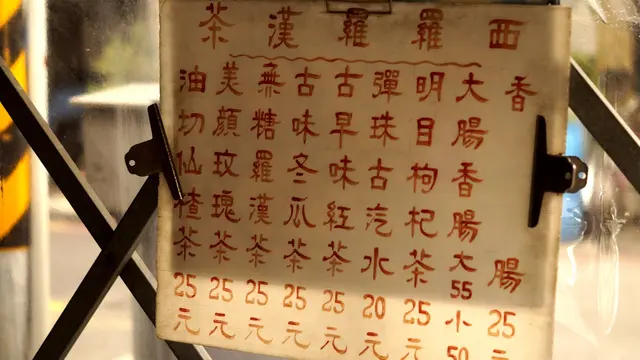 西羅羅漢茶
香腸25元
大腸香腸大55小50
明目枸杞茶25元
彈珠古汽水20元
古早味紅茶25元
古味冬瓜茶25元
無糖羅漢茶25元
美顏玫瑰茶25元
油切仙楂茶25元